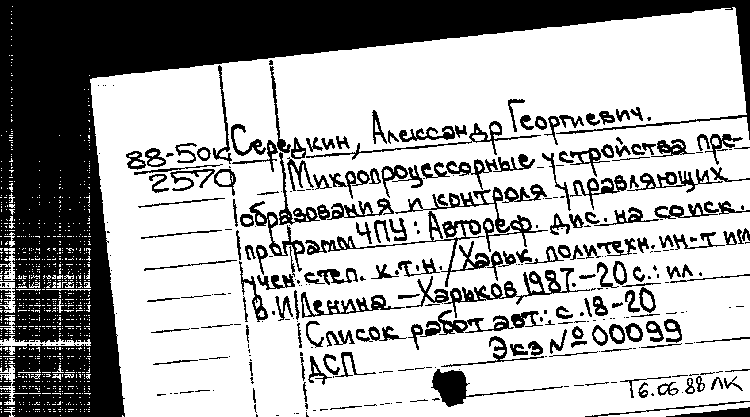 88-50к
2570
Середкин, Александр Георгиевич.
Микропроцессорные устройства пре-
образования и контроля управляющих
программ ЧПУ: Автореф. дис. на соиск.
учен. степ. к.т.н. / Харьк. политехн. ин-т им
В.И. Ленина. — Харьков, 1987. — 20 с.: ил.
Список работ авт.: с. 18-20
ДСП Экз № 00099
16.06.88 ЛК